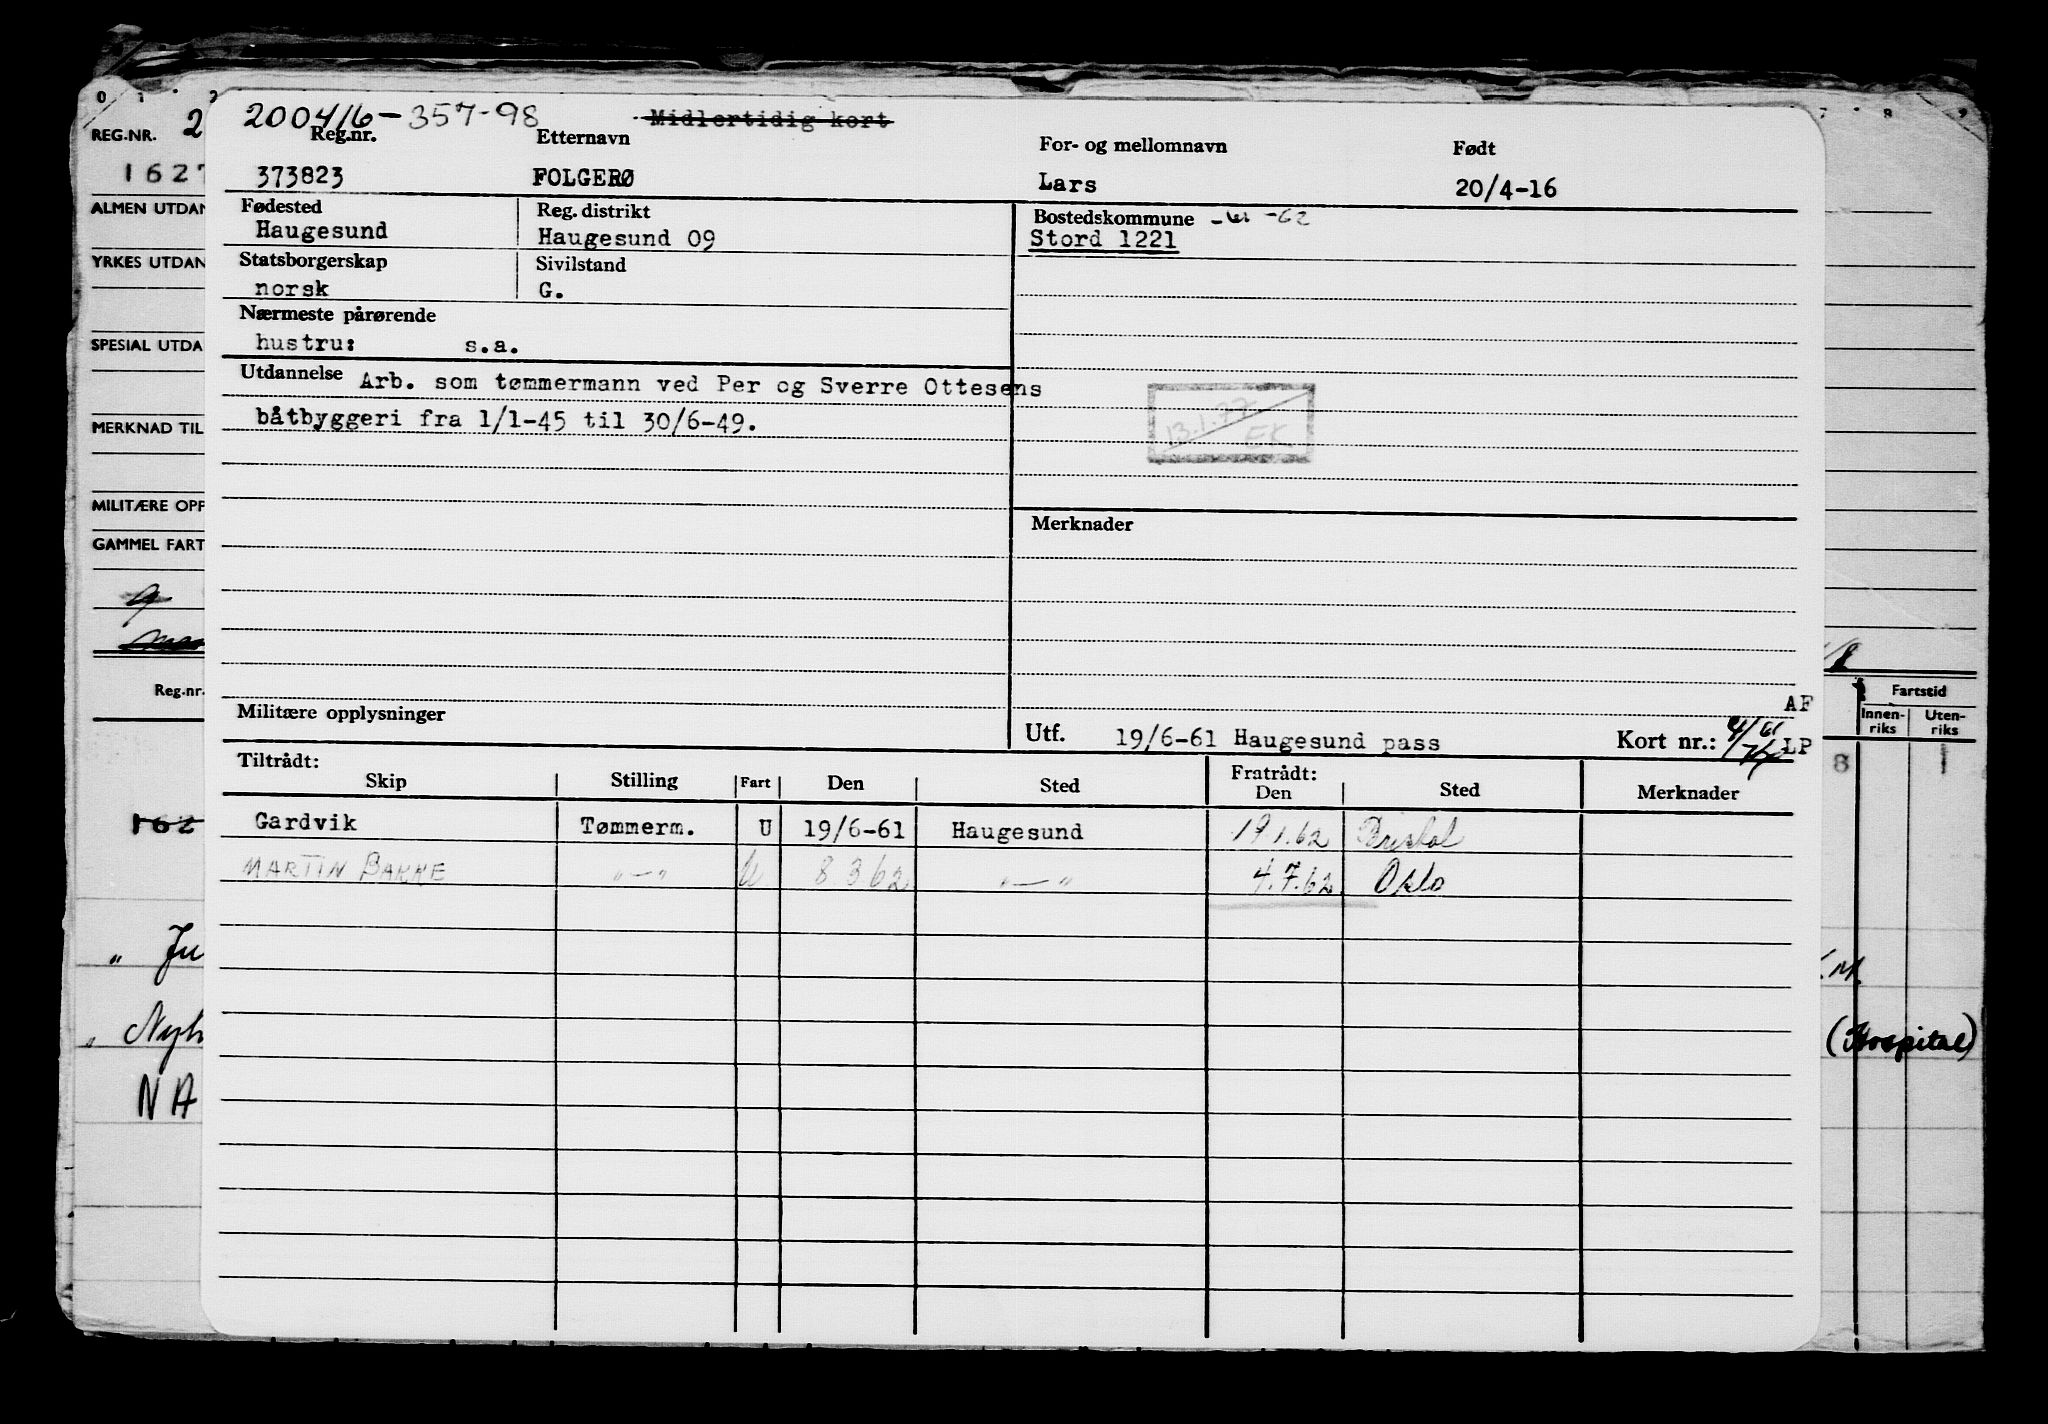 200416-357-98 Midlertidig kort
Reg.nr. Etternavn For- og mellomnavn Født
373823 FOLGERØ Lars 20/4-16
Fødested Reg. distrikt Bostedskommune -62
Haugesund Haugesund 09 Stord 1221
Statsborgerskap Sivilstand
norsk G.
Nærmeste pårørende
hustru: s.a.
Utdannelse Arb. som tømmermann ved Per og Sverre Ottesens
båtbyggeri fra 1/1-45 til 30/6-49.
13.1.77
EK
Merknader
Militære opplysninger
AF
Utf. 19/6-61 Haugesund pass Kort nr.: LP
Tiltrådt: Fratrådt:
Skip Stilling Fart Den Sted Den Sted Merknader
Gardvik Tømmerm. U 19/6-61 Haugesund 19.1.62 Bristol
MARTIN BAKKE "—" U 8 3 62 "—" 4.7.62 Oslo
REG.NR. 2
1627
ALMEN UTDAN
YRKES UTDAN
SPESIAL UTDA
MERKNAD TIL
MILITÆRE OPP
GAMMEL FART
Reg.nr.
162
" Ju
" Nyh
NA
Fartstid
Innen-riks Uten-riks
8 1
(Hospital)